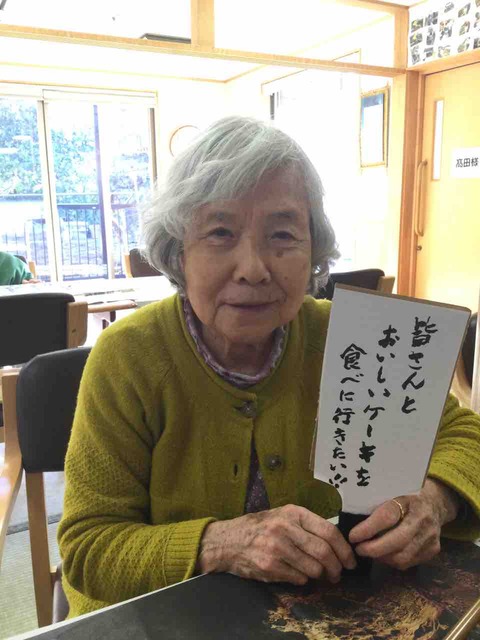 皆さんと
おいしいケーキを
食べに行きたい!!
高田様